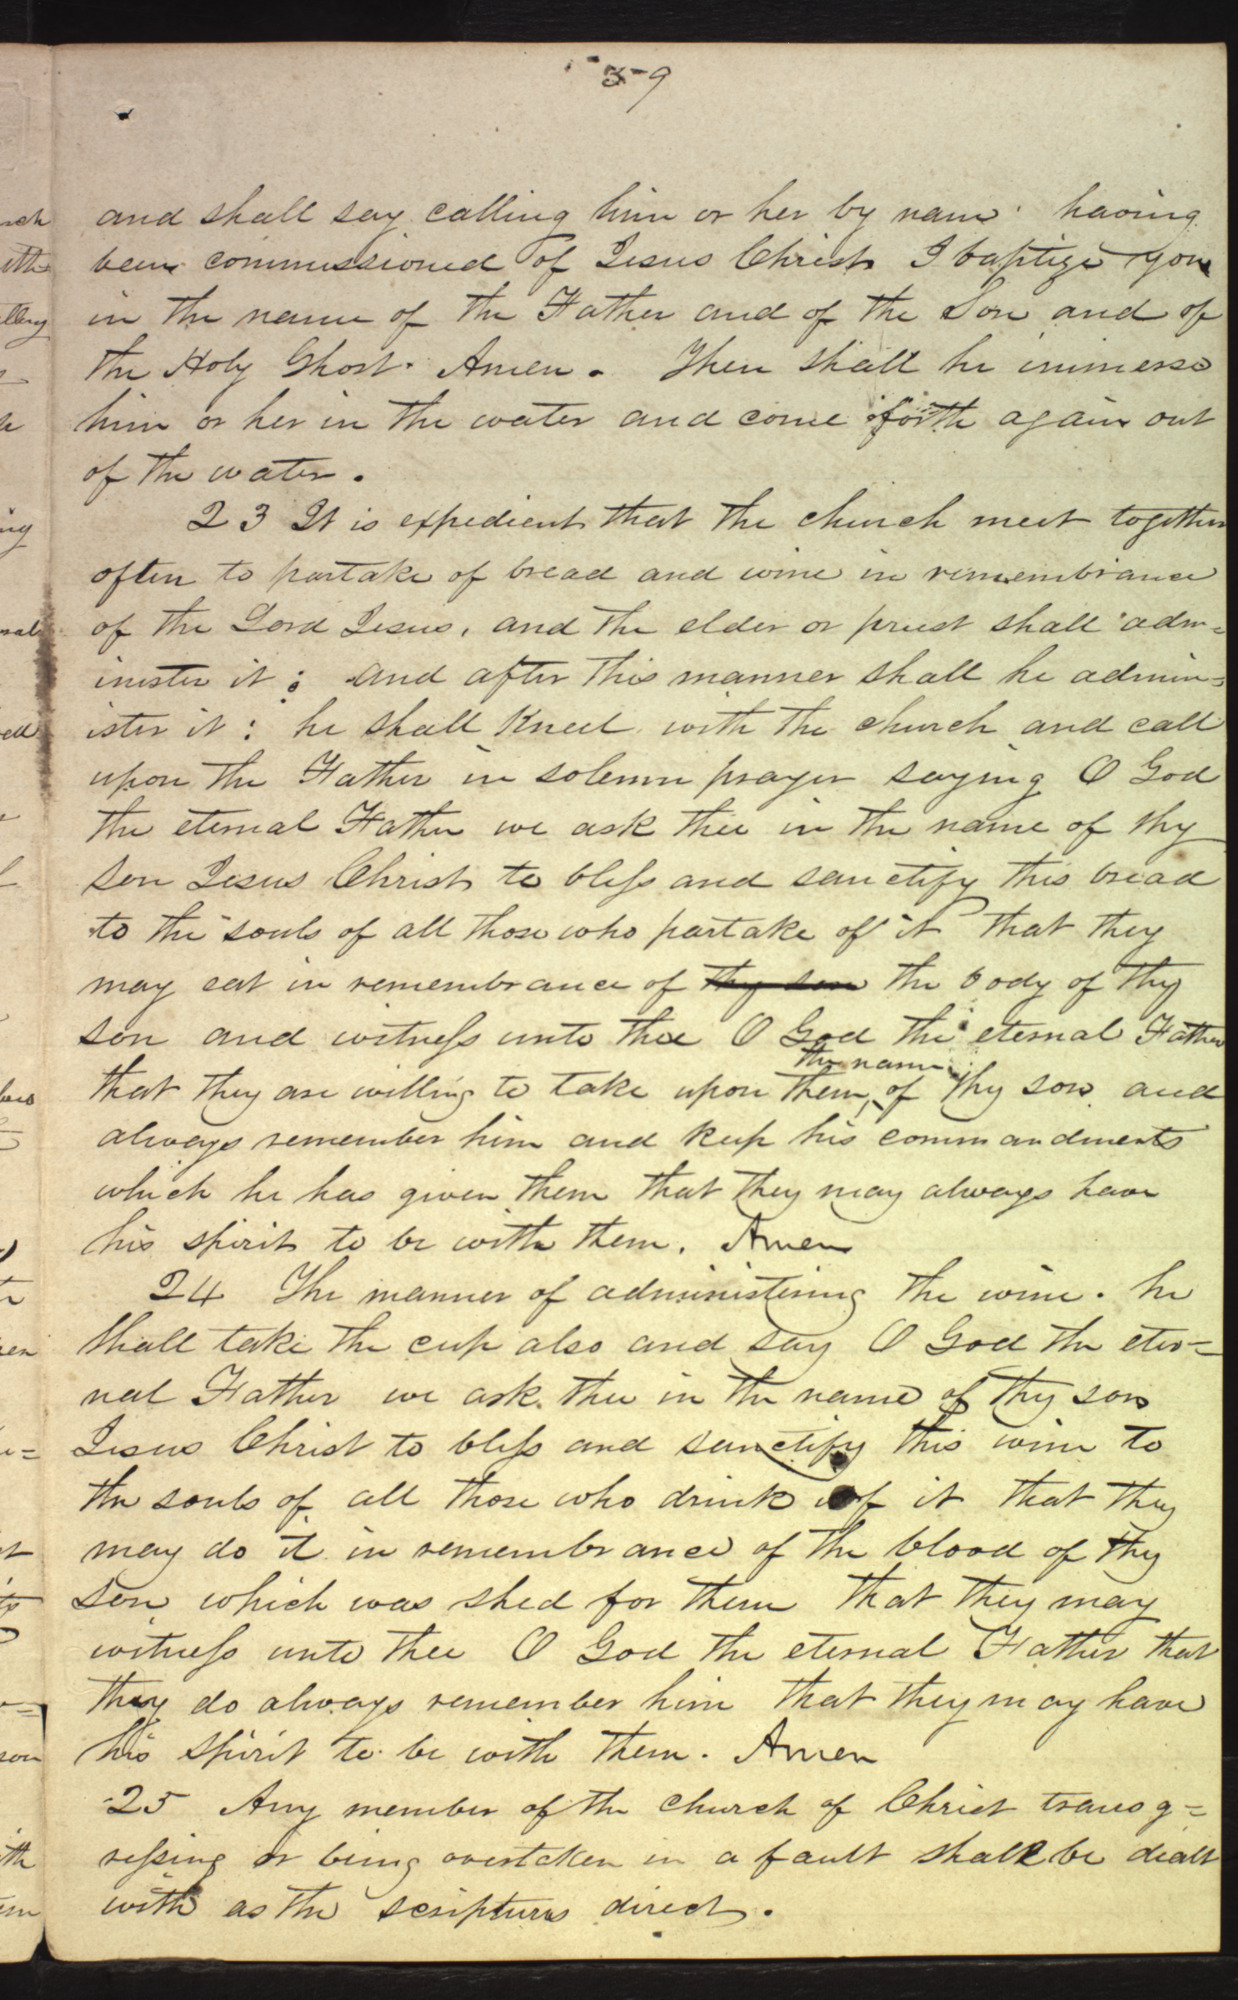 59
and shall say calling him or her by name having
been commissioned of Jesus Christ I baptize you
in the name of the Father and of the Son and of
the Holy Ghost. Amen. Then shall he immerse
him or her in the water and come forth again out
of the water.
23 It is expedient that the church meet together
often to partake of bread and wine in remembrance
of the Lord Jesus, and the elder or priest shall adm=
inister it; and after this manner shall he admin=
ister it: he shall kneel with the church and call
upon the Father in solemn prayer saying O God
the eternal Father we ask thee in the name of thy
son Jesus Christ to bless and sanctify this bread
to the souls of all those who partake of it that they
may eat in remembrance of thy son the body of thy
son and witness unto thee O God the eternal Father
the name
that they are willing to take upon them, of thy son and
always remember him and keep his commandments
which he has given them that they may always have
his spirit to be with them. Amen
24 The manner of administering the wine. he
shall take the cup also and say O God the eter=
nal Father we ask thee in the name of thy son
Jesus Christ to bless and sanctify this wine to
the souls of all those who drink of it that they
may do it in remembrance of the blood of thy
son which was shed for them that they may
witness unto thee O God the eternal Father that
they do always remember him that they may have
his spirit to be with them. Amen
25 Any member of the church of Christ transg=
ressing or being overtaken in a fault shall be dealt
with as the scriptures direct.